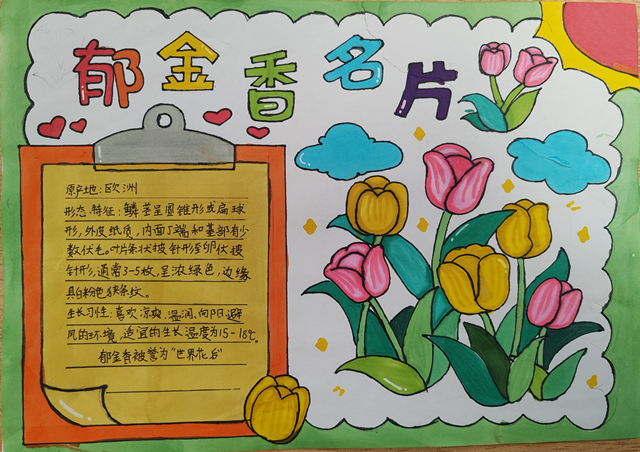 郁金香名片
原产地:欧洲
形态特征:鳞茎呈圆锥形或扁球
形,外皮纸质,内面顶端和基部有少
数伏毛。叶片条状披针形至卵状披
针形,通常3-5枚,呈浓绿色,边缘
具白粉色条纹。
生长习性:喜欢凉爽、湿润、向阳避
风的环境,适宜的生长温度为15-18℃。
郁金香被誉为“世界花后”